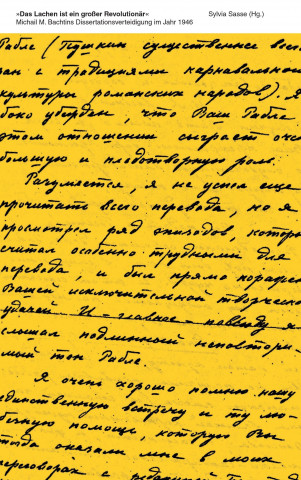 »Das Lachen ist ein großer Revolutionär« Sylvia Sasse (Hg.)
Michail M. Bachtins Dissertationsverteidigung im Jahr 1946
Рабле (Пушкин существеннее всего
зан с традициями карнавальной
культуры романских народов). Я
боко убежден, что Ваш Рабле
этом отношении сыграет очень
большую и плодотворную роль.
Разумеется, я не успел еще
прочитать всего перевода, но я
просмотрел ряд эпизодов, которые
считал особенно трудными для
перевода, и был прямо поражен
Вашей исключительной творческой
удачей И – главное – повсюду я
слышал подлинный неповтори-
мый тон Рабле.
Я очень хорошо помню нашу
единственную встречу и ту лю-
безную помощь, которую Вы
тогда оказали мне в моих
переговорах с